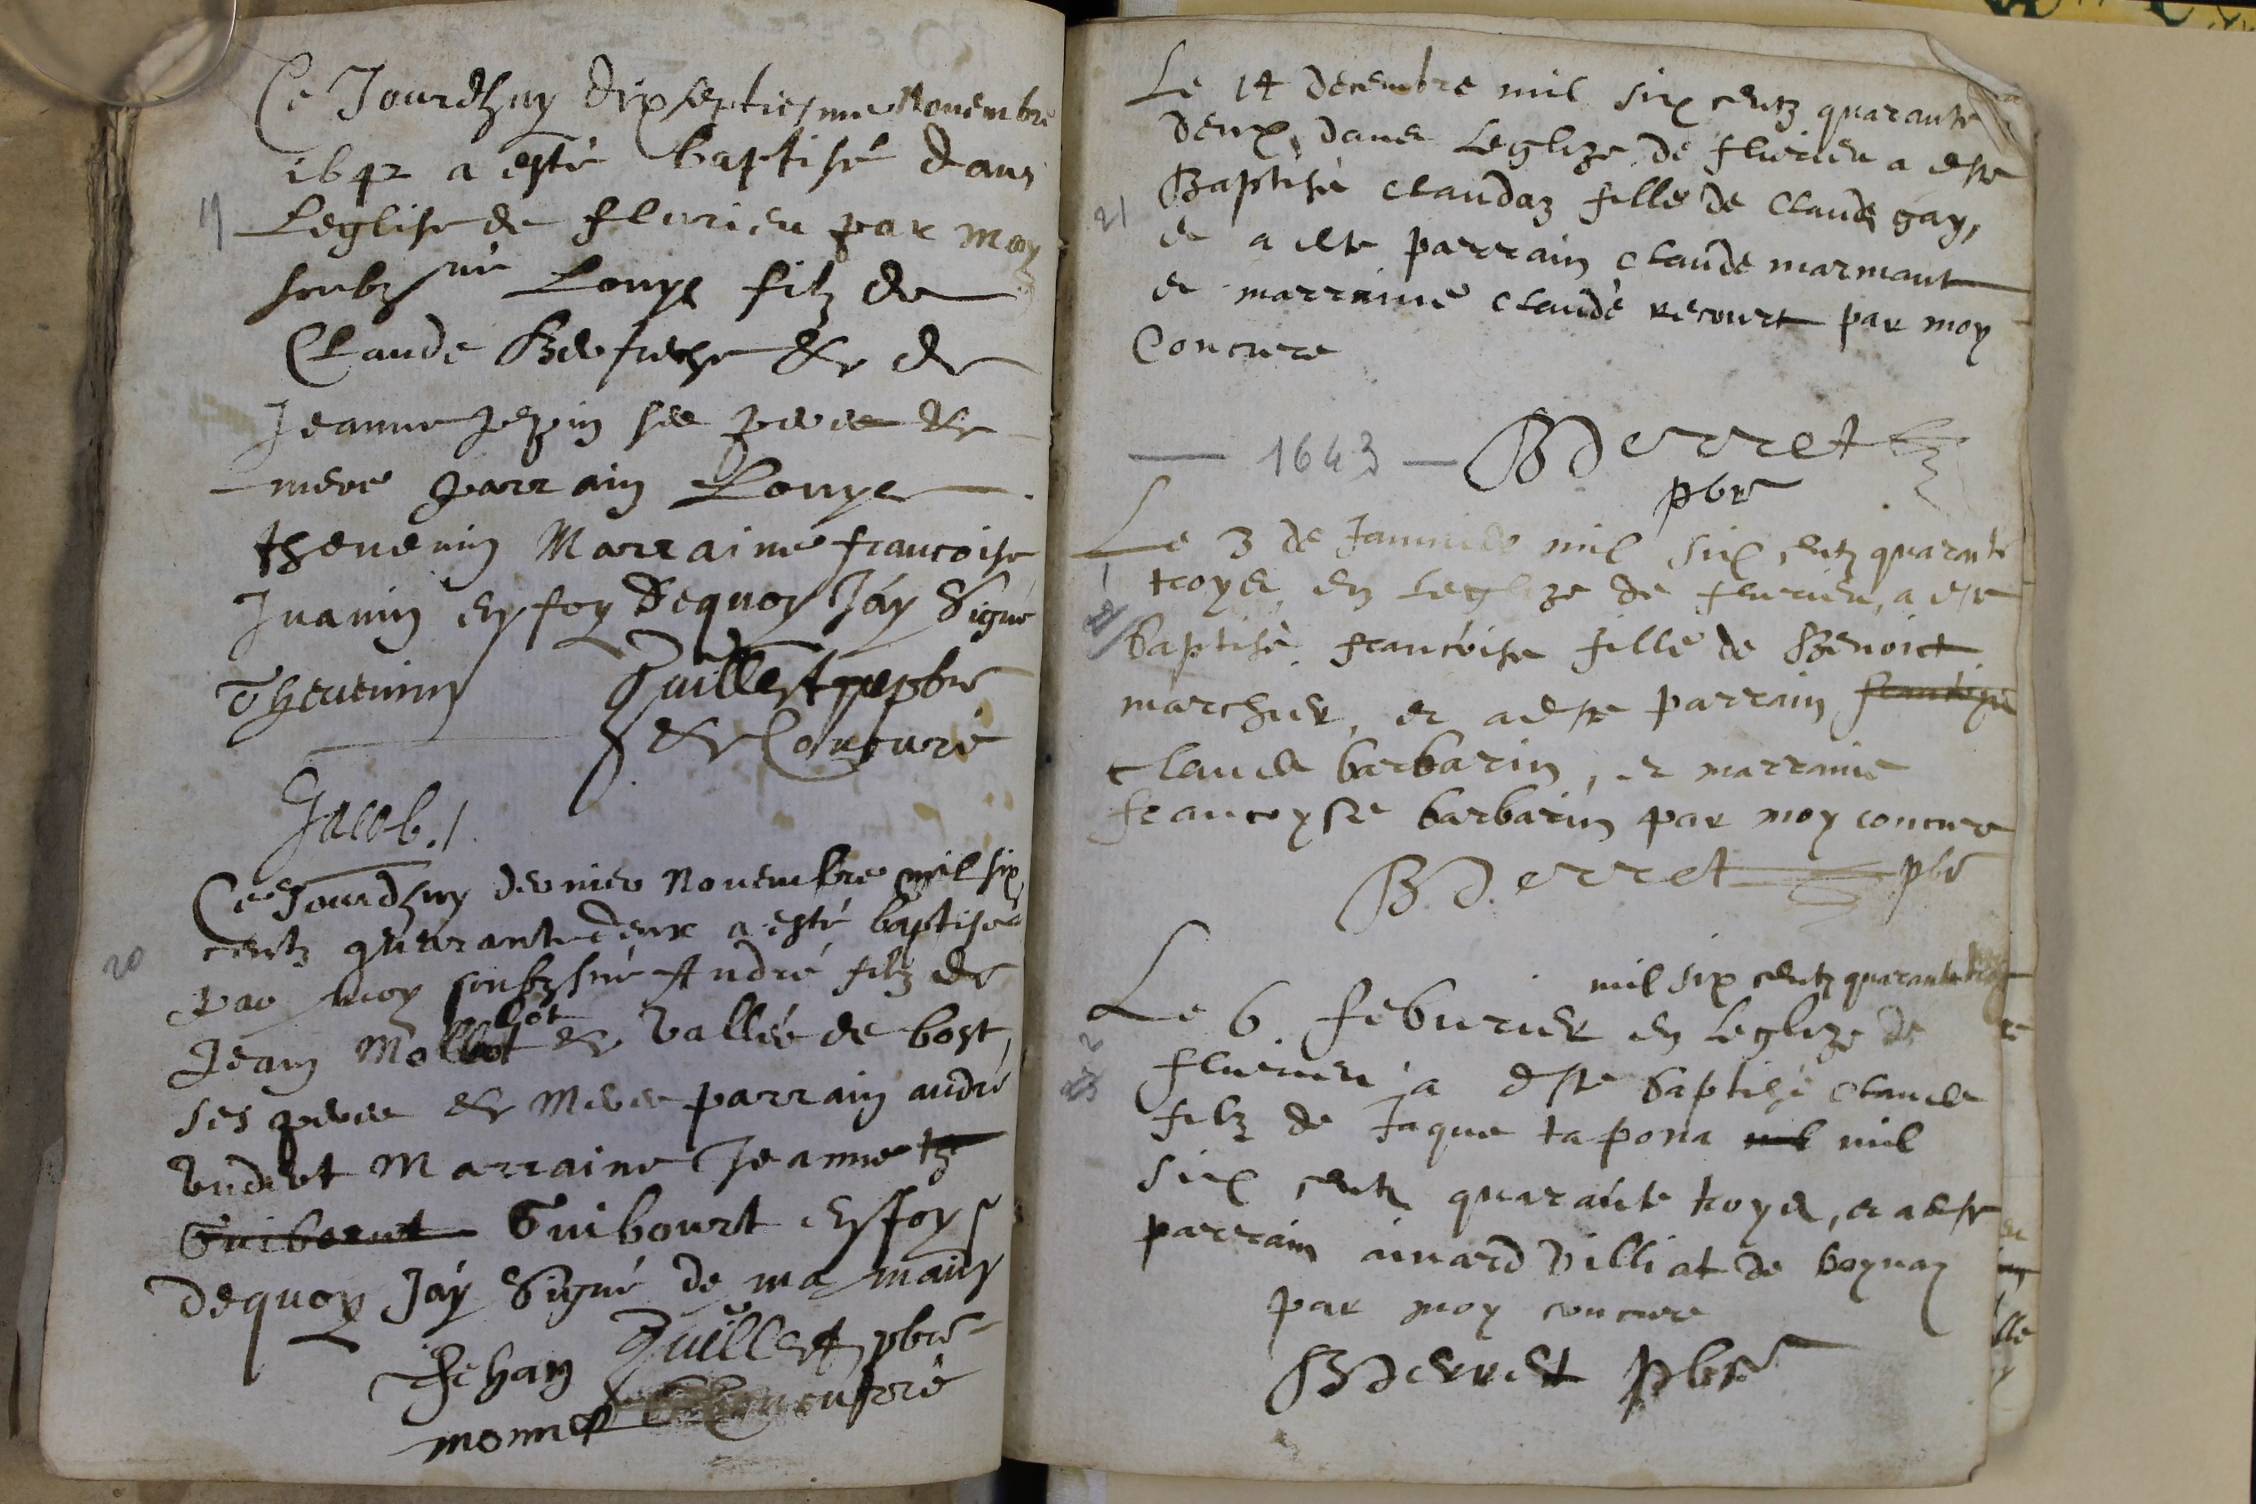 Ce Jourdhuy dixseptiesme Novembre
1642 a esté baptisé dans
19
Leglise de flurieu par moy
soubzné Louys filz de
Claude &
Jeanne pepin ses pere &
mere parrain Louys
thevenin Marraine francoise
Juanin En foy Dequoy Jáy Signé
Thevenin Quillet pbre
& Concuré
Jacob./
Ce Jourdhuy dernier Novembre mil six
centz quarante deux a esté baptisé
20
par moy soubzsné André filz de
Jean Mollot & vallée de bost
ses pere & Mere parrain andré
Marraine Jeanne
Guibourt En foy
dequoy Jáy Signé de ma main
Jehan Quillet pbre
monnet Concurré
Le 14 decembre mil six centz quarante
deux, dans Leglize de flurieu a este
21
Baptisé claudaz fille de Claude gay,
et a este parrain claude marmant
et marraine claude recourt par moy
Concure
— 1643 — BDerret
pbr
Le 3 de Janvier mil six centz quarante
1
troys, en Leglize de flurieu, a este
baptisé francoise fille de Benoict
marchier, et a este parrain
claude barbarin, et marraine
francoyse barbarin par moy concure
B.D.erret pbr
mil six centz quarante troys
Le 6 feburier en leglize de
2
flurieu a este baptisé claude
filz de Jaque tapona mil
six centz quarante troys, et a este
parrain ainard Villiat de boynay
par moy concure
BDerret pbre